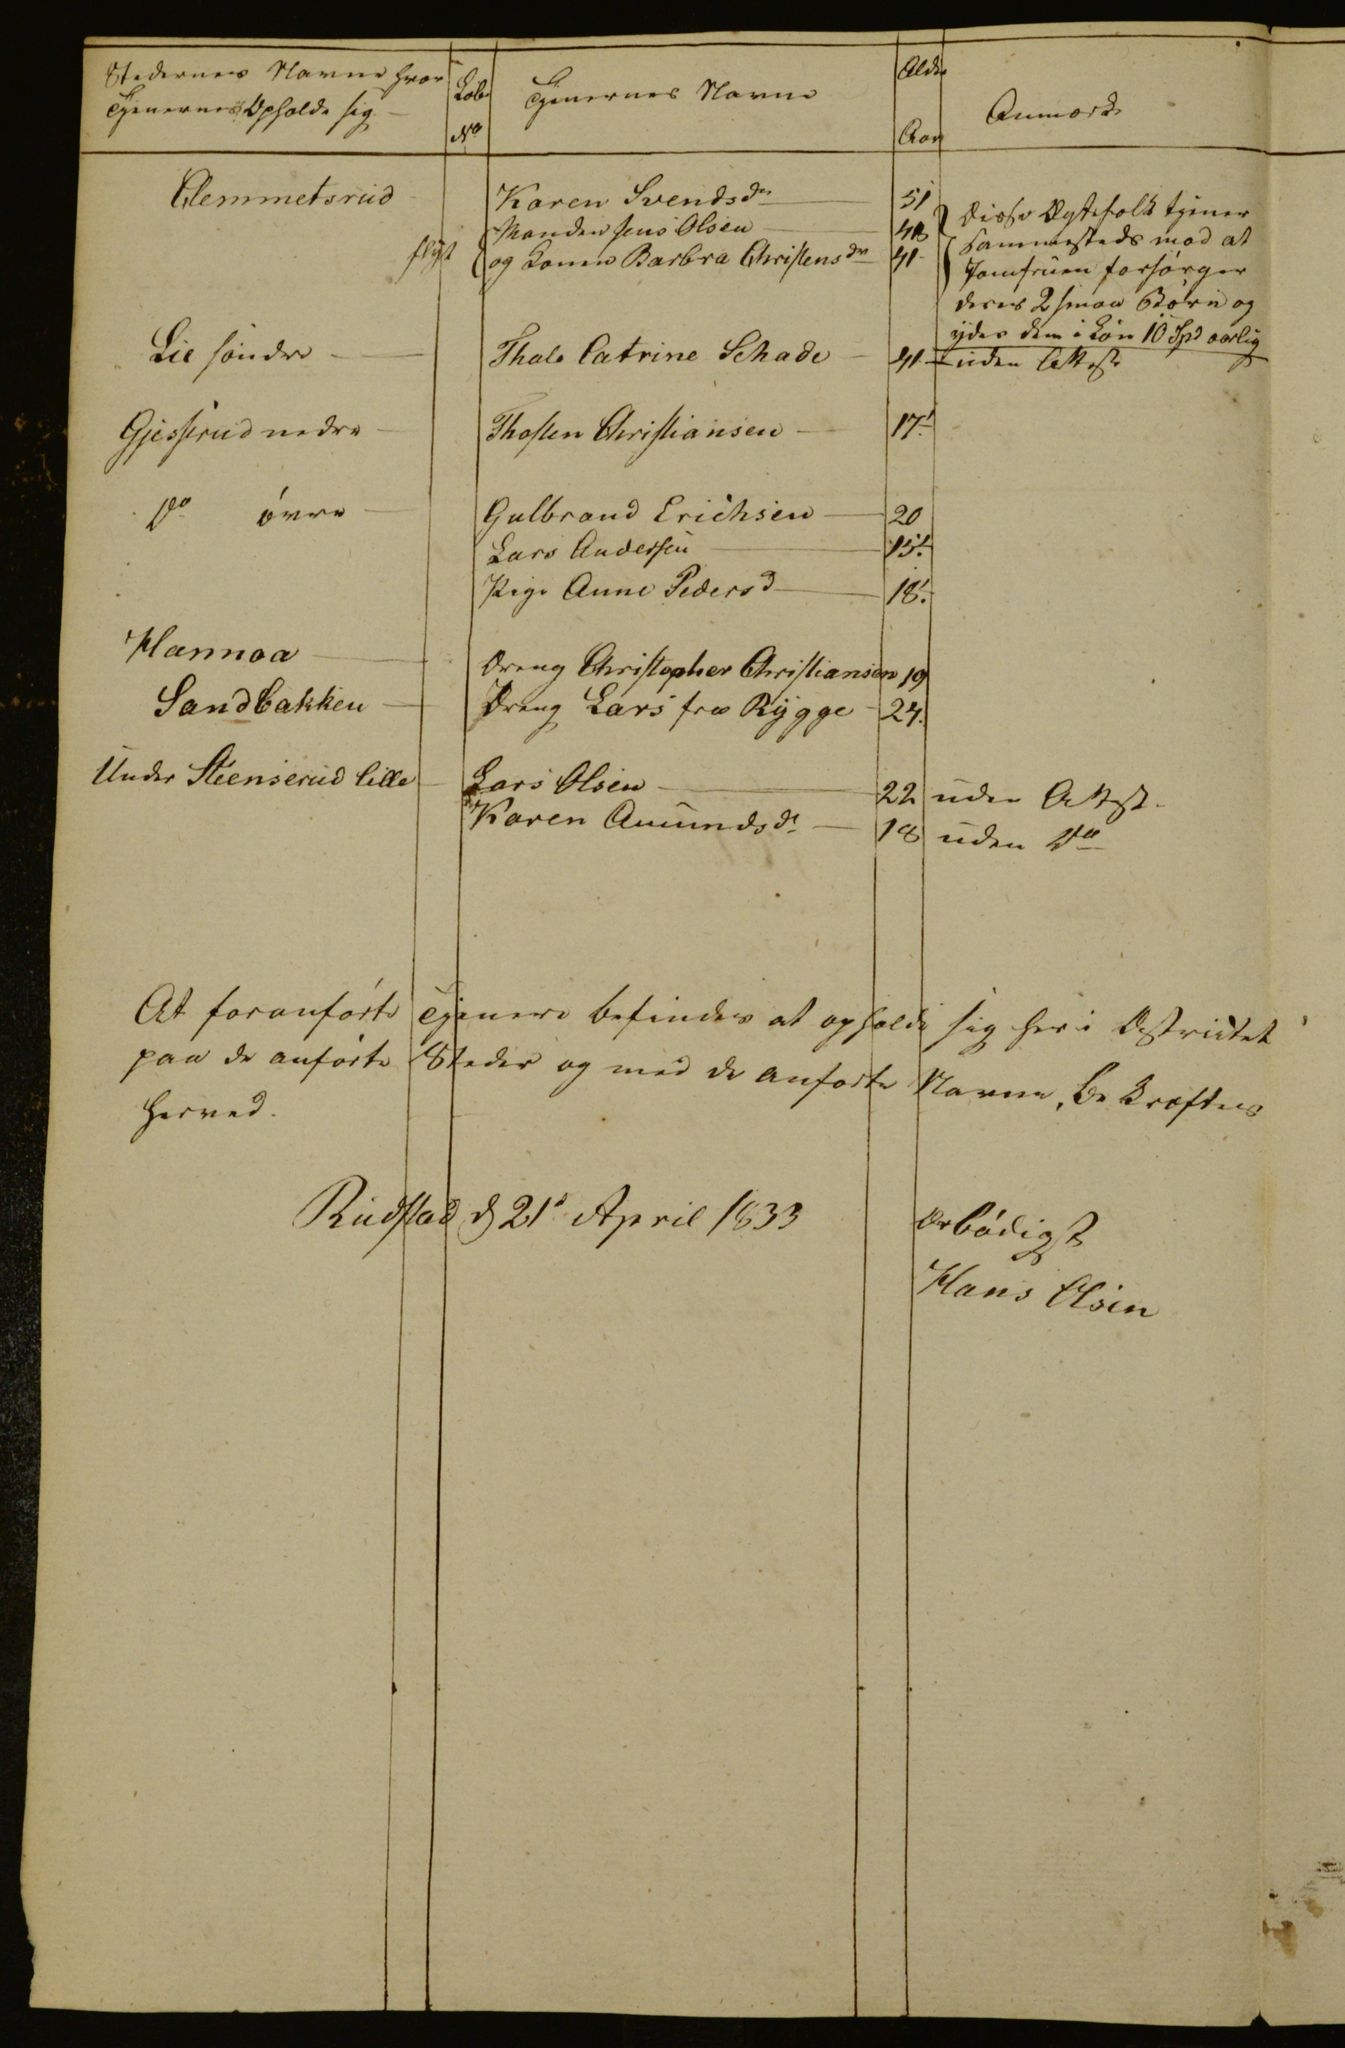 Stedernes Navne hvor
Tjenernes Opholde sig
Løbe
No
Tjenernes Navne
Alder
Aar
Anmærk
Clemmetsrud
Karen Svendsdr 51
Manden Jens Olsen
og Konen Barbra Christensdr 41
Disse Ægtefolk tjener
sammesteds mod at
Jomfruen forsørger
deres 2 smaa Børn og
ydes dem i Løn 10 Spd aarlig
Lie søndre Thale Catrine Schade 41 uden Attest
Gjessrud nedre Thosten Christiansen 17
Do øvre Gulbrand Erichsen 20
Lars Anderssen 15
Pige Anne Pedersd 18
Hannoa Dreng Christopher Christiansen 19
Sandbakken Dreng Lars fra Rygge 24
Under Steenserud lille Lars Olsen 22 uden Attest
Karen Amundsdr 18 uden Do
At foranførte Tjenere befindes at opholde sig her i Districtet
paa de anførte Steder og med de anførte Navne, bekræftes
herved.
Rudstad d 21d April 1833
Ærbødigst
Hans Olsen